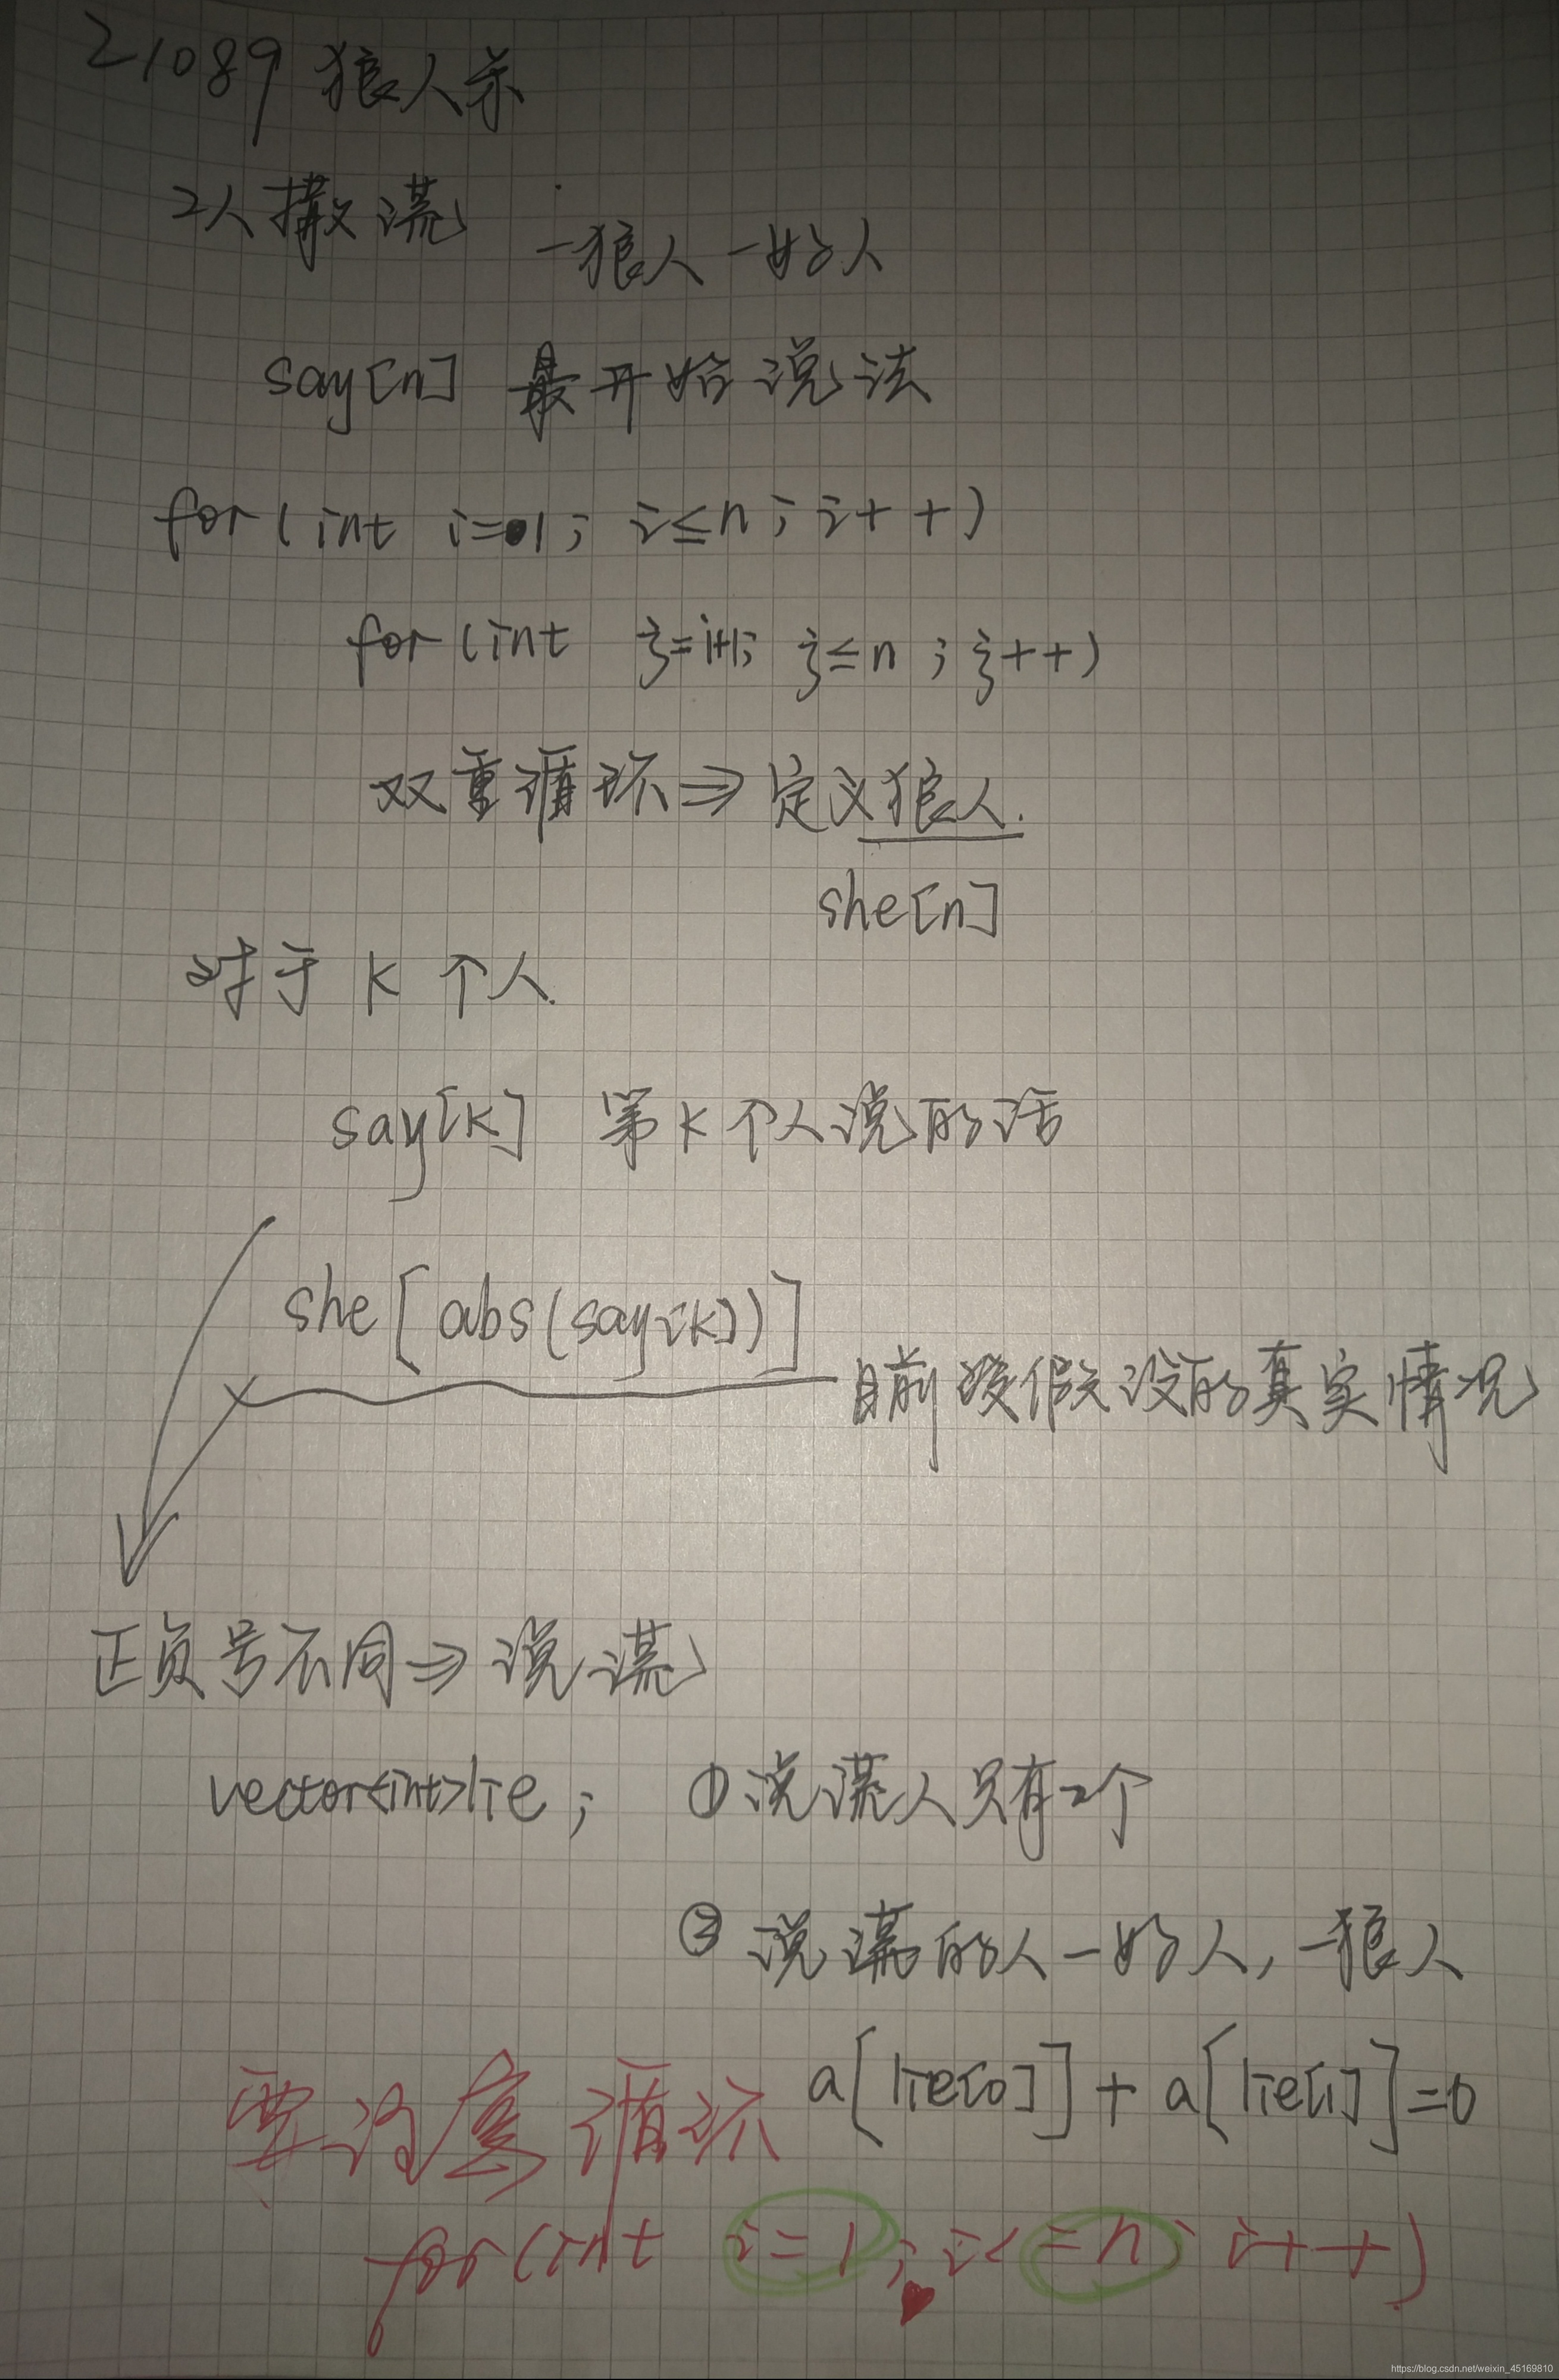 21089 狼人杀
2人撒谎 一狼人一好人
say[n] 最开始说法
for(int i=1; i≤n; i++)
for(int j=i+1; j≤n; j++)
双重循环⇒定义狼人.
she[n]
对于 k 个人.
say[k] 第k个人说的话
she[abs(say[k])]
目前被假设的真实情况
正负号不同⇒说谎
vector<int>lie; ①说谎人只有2个
②说谎的人一好人,一狼人
a[lie[0]] + a[lie[1]]=0
要注意循环
for(int i=1; i<=n; i++)
https://blog.csdn.net/weixin_45169810